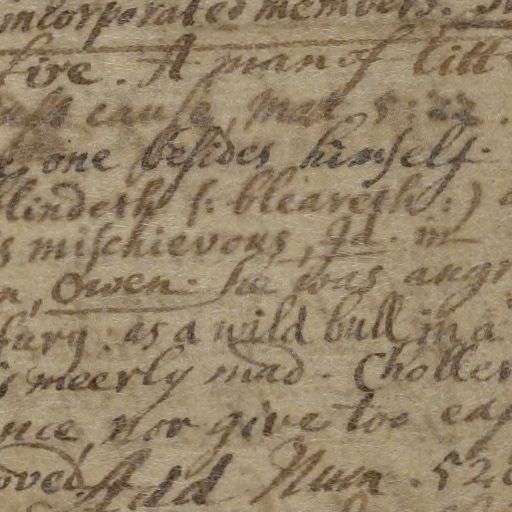 incorporated members.
fire. A man of litt
cause, Mat. 5:22.
one besides himself.
blindeth (: bleareth :)
is mischievous, Id. m
Owen. he was angr
fury: as a wild bull in a
is meerly mad - Choller
nce, nor give too eas
oved. Add Num. 528